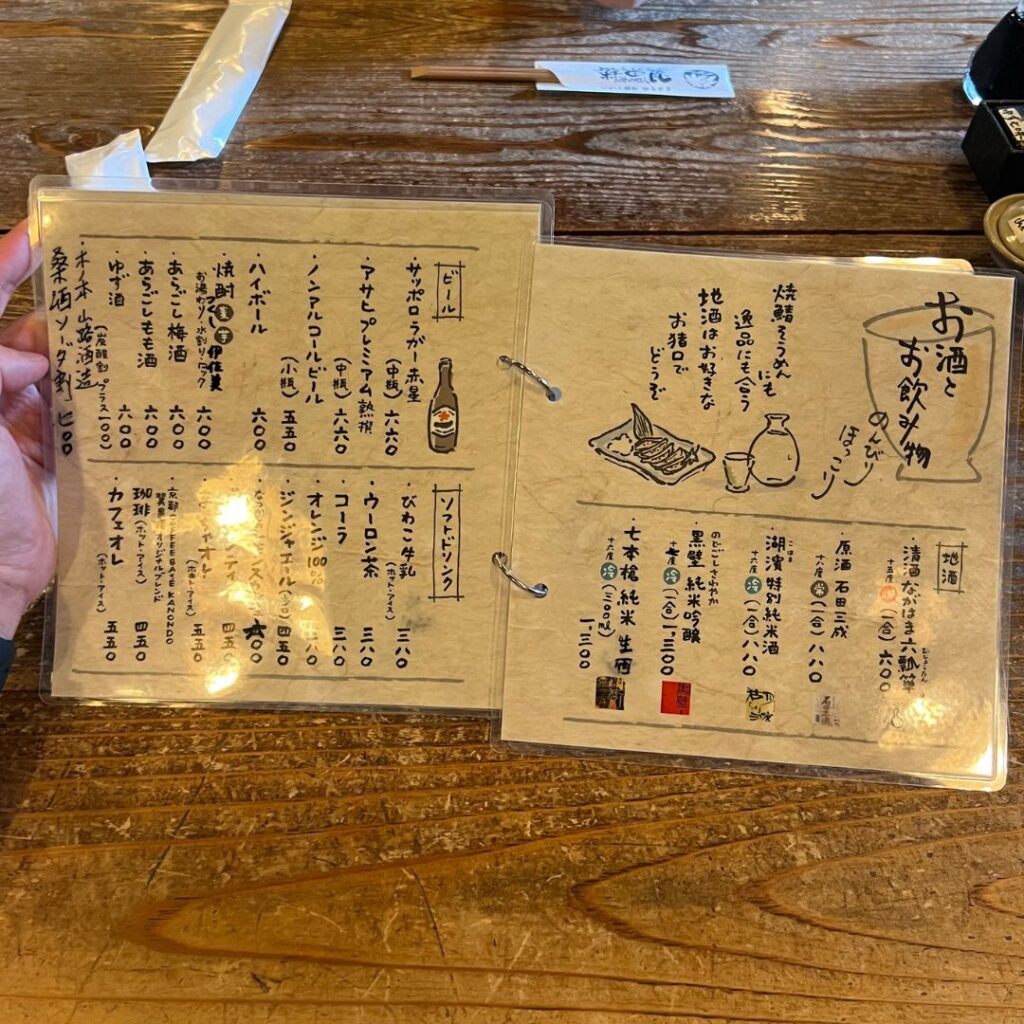 お酒と
お飲み物
のんびり
ほっこり
焼鯖そうめん
にも
逸品にも合う
地酒はお好きな
お猪口で
どうぞ
地酒
・清酒 ながはま六瓢箪
十五度 (一合) 六〇〇
・原酒 石田三成
十八度 常 (一合) 八八〇
こはま
・湖濱 特別純米酒
十六度 冷 (一合) 八八〇
のどごしさわやか
・黒壁 純米吟醸
冷 (一合) 一、三〇〇
・七本槍 純米 生酒
十六度 冷 (三〇〇ml) 一、三〇〇
ビール
・サッポロラガー赤星
(中瓶) 六六〇
・アサヒプレミアム熟撰
(中瓶) 六六〇
・ノンアルコールビール
(小瓶) 五五〇
・ハイボール 六〇〇
・焼酎 麦 芋 伊佐美 六〇〇
お湯わり・水割り・ロック
・あらごし梅酒 六〇〇
・あらごしもも酒 六〇〇
・ゆず酒 六〇〇
(炭酸割 プラス一〇〇)
・木之本 山路酒造
桑酒ソーダ割 七〇〇
ソフトドリンク
・びわこ牛乳 三八〇
(ホット・アイス)
・ウーロン茶 三八〇
・コーラ 三八〇
・オレンジ100% 三八〇
・ジンジャエール(辛口) 四五〇
六〇〇
ティ 四五〇
オレ 五五〇
(ホット・アイス)
・京都COFFEE BASE KANONDO
翼果楼オリジナルブレンド
珈琲(ホット・アイス) 四五〇
・カフェオレ 五五〇
(ホット・アイス)